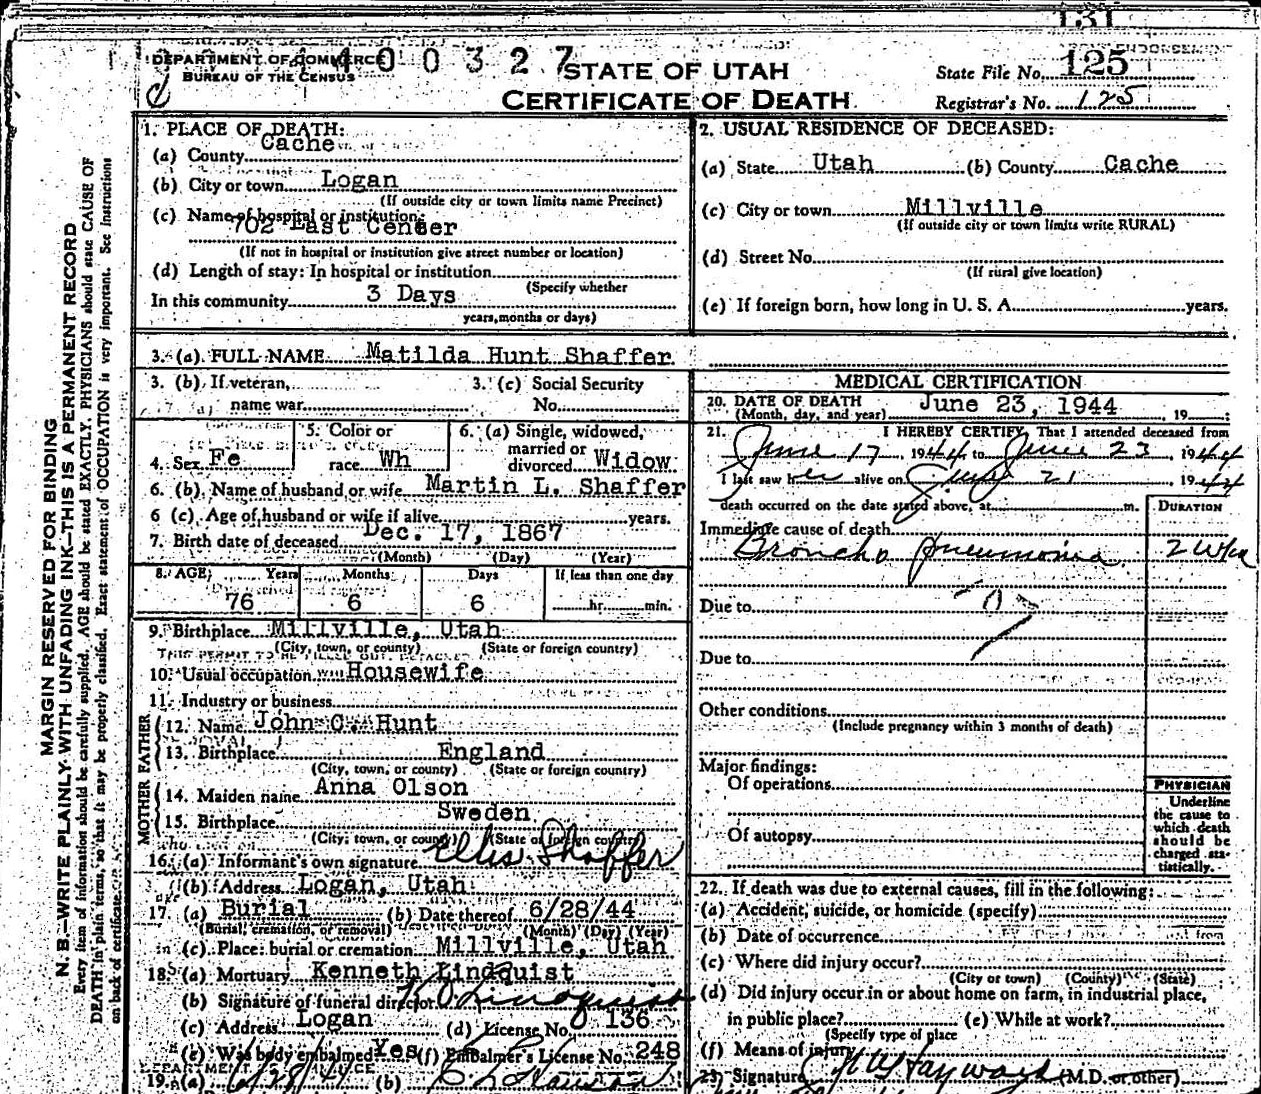 131
DEPARTMENT OF COMMERCE
BUREAU OF THE CENSUS
400327
STATE OF UTAH
CERTIFICATE OF DEATH
State File No. 125
Registrar's No. 125
MARGIN RESERVED FOR BINDING
N. B.—WRITE PLAINLY WITH UNFADING INK—THIS IS A PERMANENT RECORD
Every item of information should be carefully supplied. AGE should be stated EXACTLY. PHYSICIANS should state CAUSE OF
DEATH in plain terms, so that it may be properly classified. Exact statement of OCCUPATION is very important. See instructions
on back of certificate.
1. PLACE OF DEATH:
(a) County Cache
(b) City or town Logan
(If outside city or town limits name Precinct)
(c) Name of hospital or institution:
702 East Center
(If not in hospital or institution give street number or location)
(d) Length of stay: In hospital or institution
(Specify whether
In this community 3 Days
years, months or days)
2. USUAL RESIDENCE OF DECEASED:
(a) State Utah (b) County Cache
(c) City or town Millville
(If outside city or town limits write RURAL)
(d) Street No.
(If rural give location)
(e) If foreign born, how long in U. S. A. years.
3. (a) FULL NAME Matilda Hunt Shaffer
3. (b) If veteran, name war
3. (c) Social Security No.
4. Sex Fe
5. Color or race Wh
6. (a) Single, widowed, married or divorced Widow
6. (b) Name of husband or wife Martin L. Shaffer
6 (c) Age of husband or wife if alive years.
7. Birth date of deceased Dec. 17, 1867
(Month) (Day) (Year)
8. AGE: Years Months Days If less than one day
76 6 6 hr. min.
9. Birthplace Millville, Utah
(City, town, or county) (State or foreign country)
10. Usual occupation Housewife
11. Industry or business
FATHER
12. Name John C. Hunt
13. Birthplace England
(City, town, or county) (State or foreign country)
MOTHER
14. Maiden name Anna Olson
15. Birthplace Sweden
(City, town, or county) (State or foreign country)
16. (a) Informant's own signature Ellis Shaffer
(b) Address Logan, Utah
17. (a) Burial (b) Date thereof 6/28/44
(Burial, cremation, or removal) (Month) (Day) (Year)
(c) Place: burial or cremation Millville, Utah
18. (a) Mortuary Kenneth Lindquist
(b) Signature of funeral director K O Lindquist
(c) Address Logan (d) License No. 136
(e) Was body embalmed Yes (f) Embalmer's License No. 248
19. (a) (b)
MEDICAL CERTIFICATION
20. DATE OF DEATH
(Month, day, and year) June 23, 1944, 19 :
21. I HEREBY CERTIFY, That I attended deceased from
June 17, 1944 to June 23, 1944
I last saw her alive on June 21, 1944
death occurred on the date stated above, at m.
DURATION
Immediate cause of death
Broncho pneumonia 2 wks
Due to
Due to
Other conditions
(Include pregnancy within 3 months of death)
Major findings:
Of operations
Of autopsy
PHYSICIAN
Underline
the cause to
which death
should be
charged sta-
tistically.
22. If death was due to external causes, fill in the following:
(a) Accident, suicide, or homicide (specify)
(b) Date of occurrence
(c) Where did injury occur?
(City or town) (County) (State)
(d) Did injury occur in or about home on farm, in industrial place,
in public place? (e) While at work?
(Specify type of place
(f) Means of injury
23. Signature Hayward (M.D. or other)